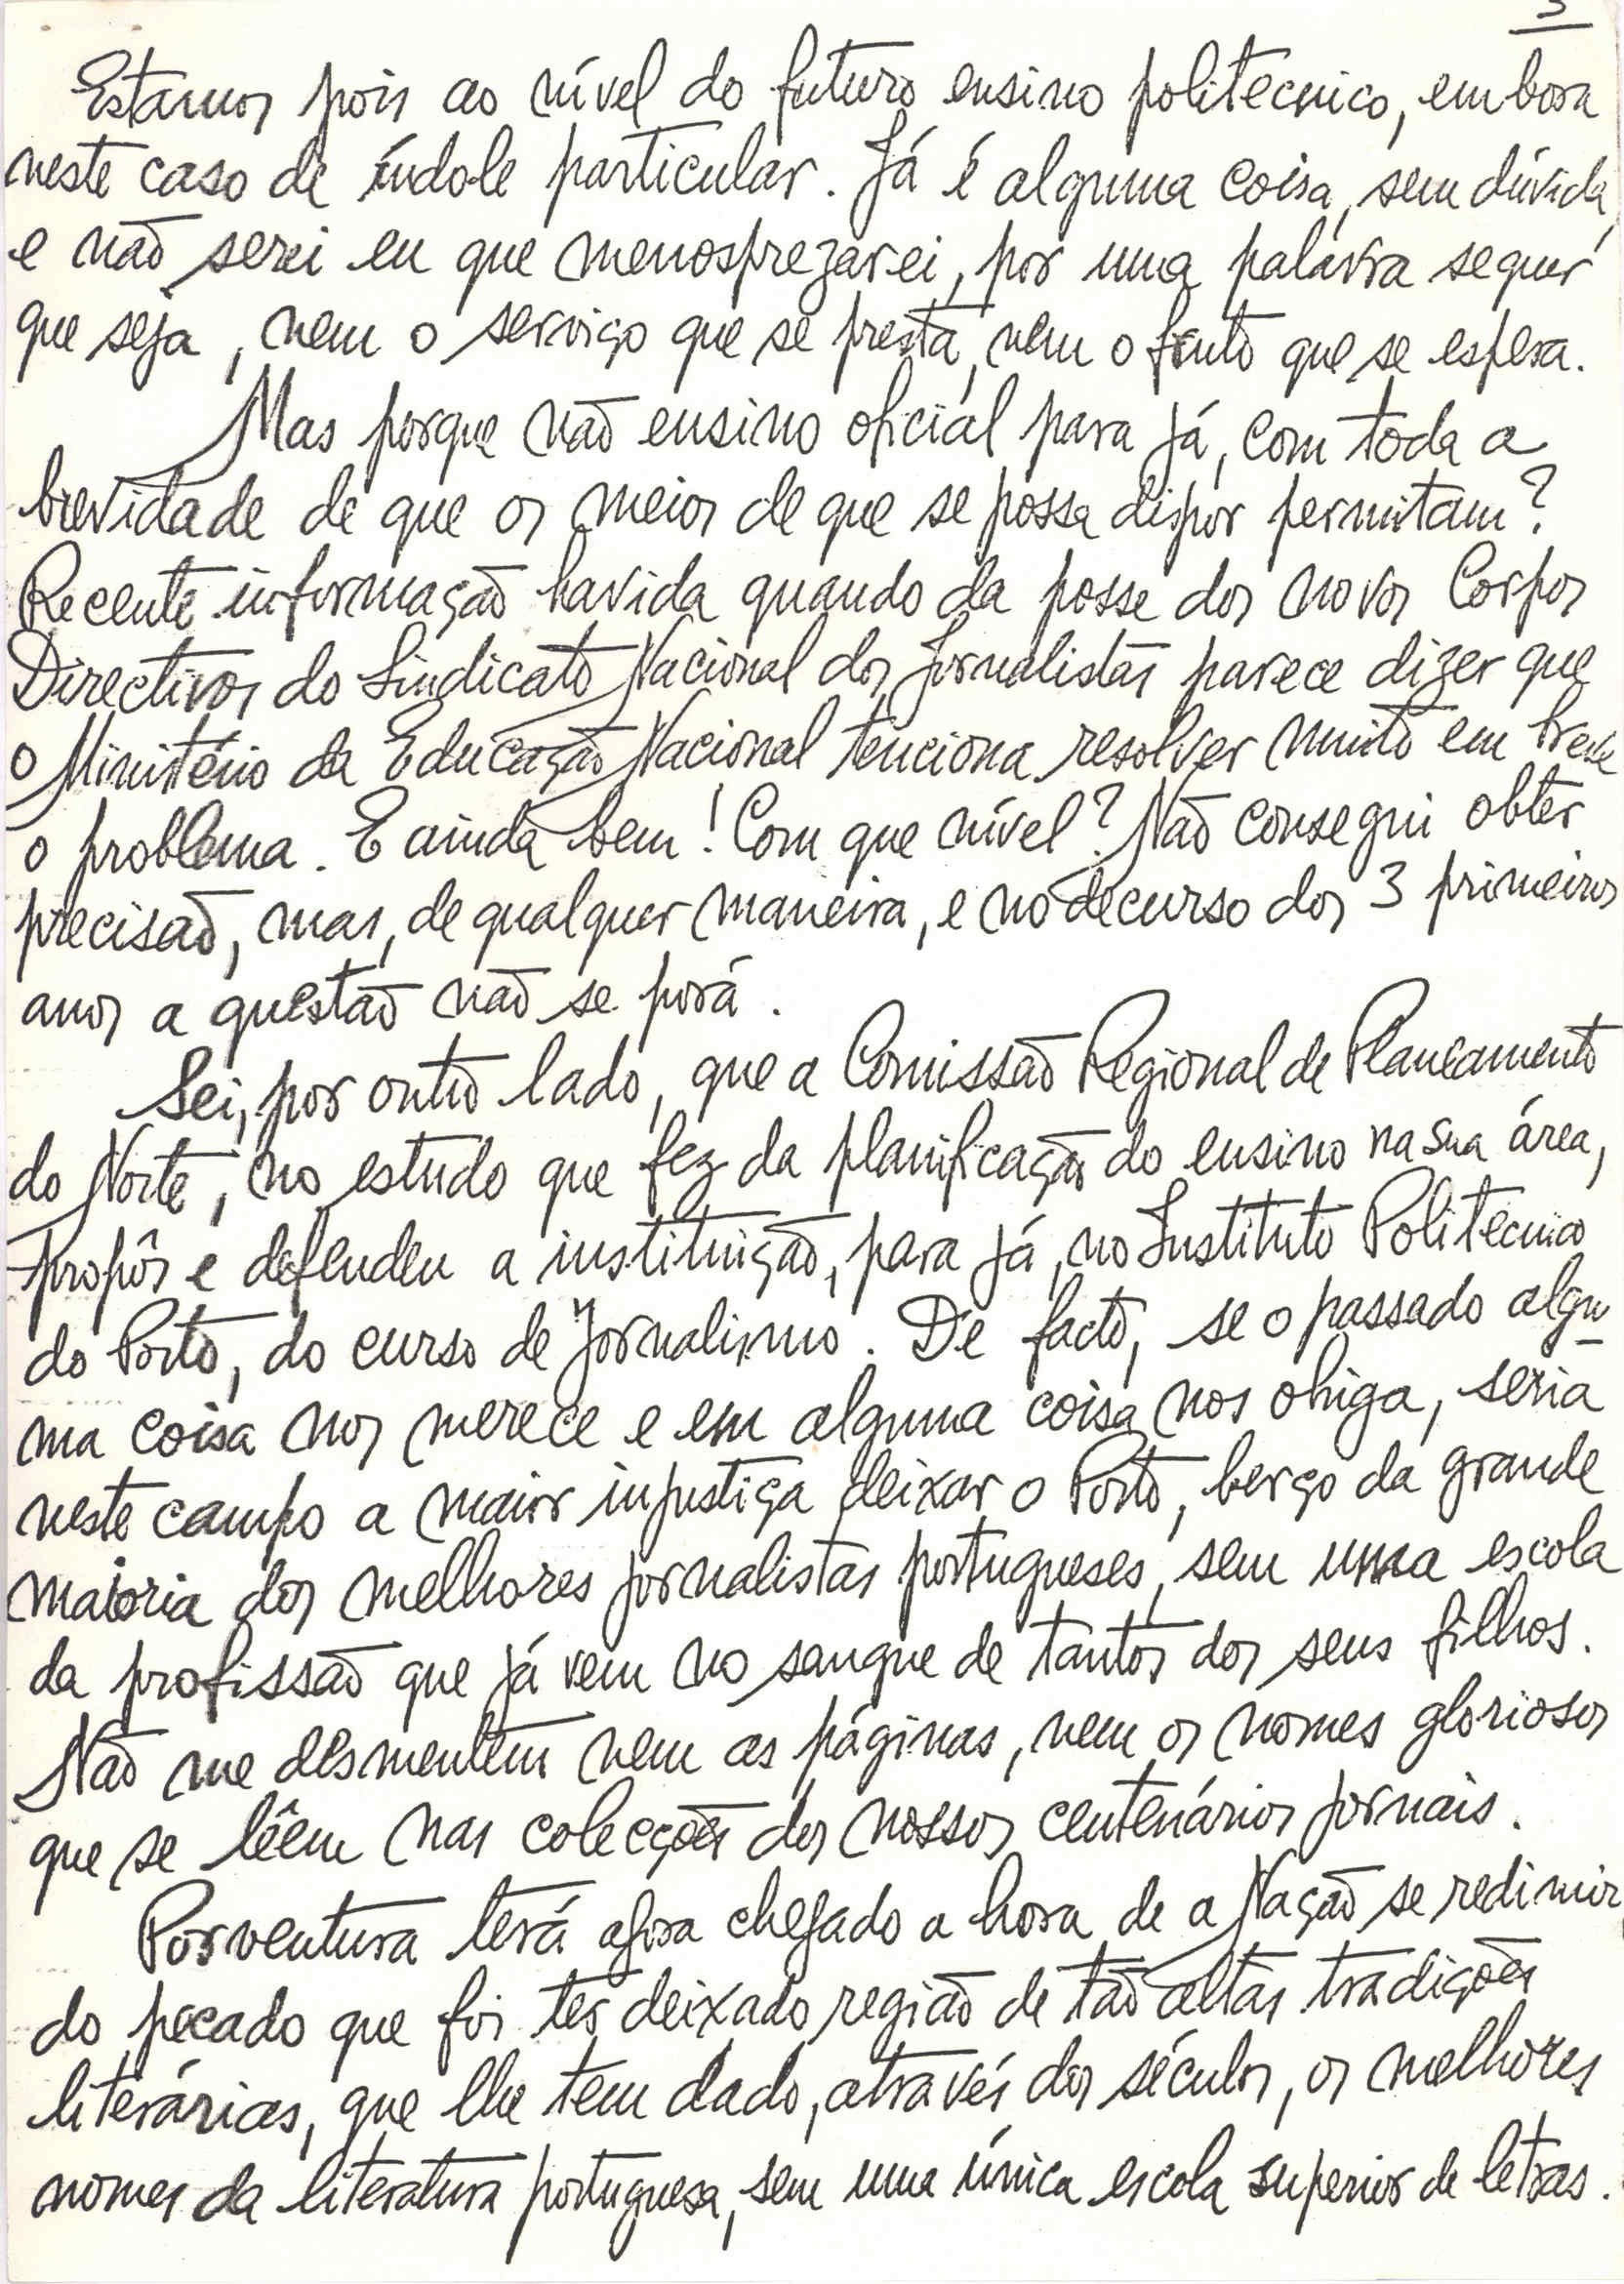 Estamos pois ao nível do futuro ensino politécnico, embora
neste caso de índole particular. Já é alguma coisa, sem dúvida,
e não serei eu que menosprezarei, por uma palavra sequer
que seja, nem o serviço que se presta, nem o fruto que se espera.
Mas porque não ensino oficial para já, com toda a
brevidade de que os meios de que se possa dispor permitam?
Recente informação havida quando da posse dos novos Corpos
Directivos do Sindicato Nacional dos Jornalistas parece dizer que
o Ministério da Educação Nacional tenciona resolver muito em breve
o problema. E ainda bem! Com que nível? Não consegui obter
precisão, mas, de qualquer maneira, e no decurso dos 3 primeiros
anos a questão não se porá.
Sei, por outro lado, que a Comissão Regional de Planeamento
do Norte, no estudo que fez da planificação do ensino na sua área,
propôs e defendeu a instituição, para já, no Instituto Politécnico
do Porto, do curso de Jornalismo. De facto, se o passado algu-
ma coisa nos merece e em alguma coisa nos obriga, seria
neste campo a maior injustiça deixar o Porto, berço da grande
maioria dos melhores jornalistas portugueses, sem uma escola
da profissão que já vem no sangue de tantos dos seus filhos.
Não me desmentem nem as páginas, nem os nomes gloriosos
que se lêem nas colecções dos nossos centenários jornais.
Porventura terá agora chegado a hora de a Nação se redimir
do pecado que foi ter deixado região de tão altas tradições
literárias, que lhe tem dado, através dos séculos, os melhores
nomes da literatura portuguesa, sem uma única escola superior de letras.